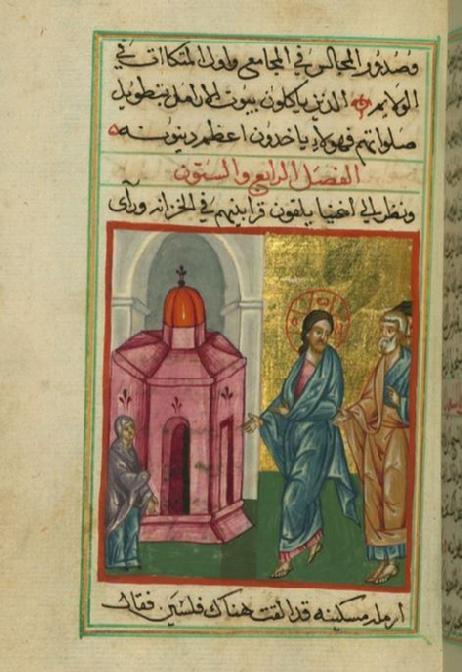 وصدور المجالس في المجامع واول المتكاات في
الولايم الذين ياكلون بيوت الارامل بتطويل
صلواتهم فهولاء ياخدون اعظم دينونه
الفصل الرابع والستون
ونظر الي اغنيا يلقون قرابينهم في الخزانه ورآى
ارمله مسكينه قد القت هناك فلسين فقال